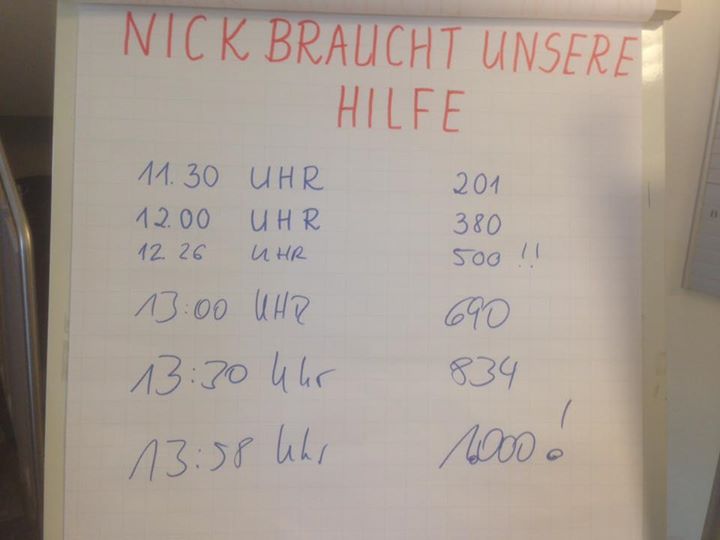 NICK BRAUCHT UNSERE
HILFE
11.30 UHR 201
12.00 UHR 380
12.26 UHR 500 !!
13:00 UHR 690
13:30 Uhr 834
13:58 Uhr 1.000!